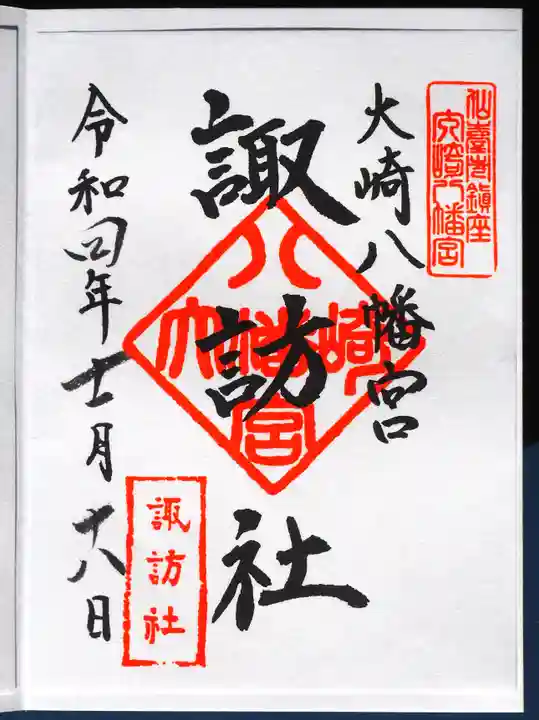 仙臺市鎮座
大崎八幡宮
大崎八幡宮
諏訪社
大崎八幡宮
諏訪社
令和四年十一月十八日